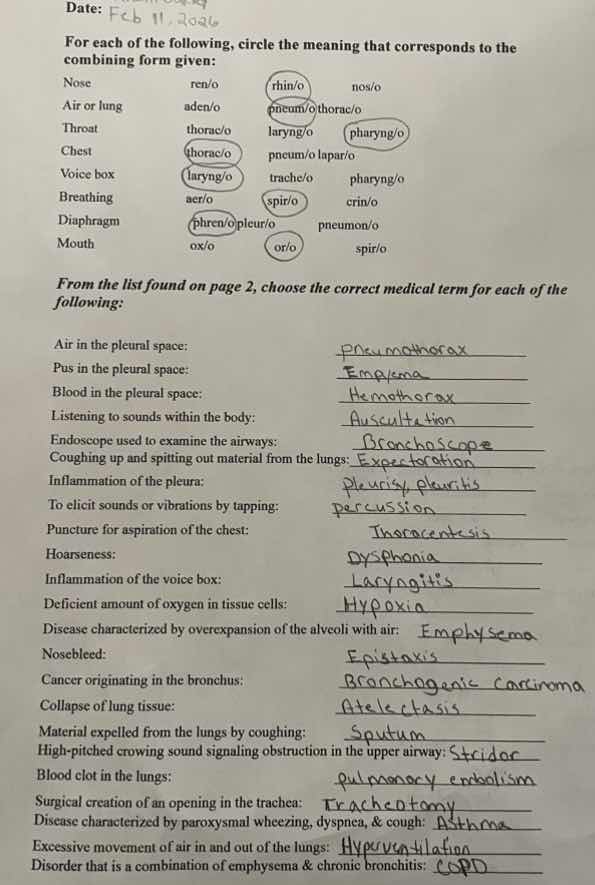 Date: Feb 11, 2026
For each of the following, circle the meaning that corresponds to the
combining form given:
Nose ren/o rhin/o nos/o
Air or lung aden/o pneum/o thorac/o
Throat thorac/o laryng/o pharyng/o
Chest thorac/o pneum/o lapar/o
Voice box laryng/o trache/o pharyng/o
Breathing aer/o spir/o crin/o
Diaphragm phren/o pleur/o pneumon/o
Mouth ox/o or/o spir/o
From the list found on page 2, choose the correct medical term for each of the
following:
Air in the pleural space: pneumothorax
Pus in the pleural space: Empyema
Blood in the pleural space: Hemothorax
Listening to sounds within the body: Auscultation
Endoscope used to examine the airways: Bronchoscope
Coughing up and spitting out material from the lungs: Expectoration
Inflammation of the pleura: pleurisy, pleuritis
To elicit sounds or vibrations by tapping: percussion
Puncture for aspiration of the chest: Thoracentesis
Hoarseness: Dysphonia
Inflammation of the voice box: Laryngitis
Deficient amount of oxygen in tissue cells: Hypoxia
Disease characterized by overexpansion of the alveoli with air: Emphysema
Nosebleed: Epistaxis
Cancer originating in the bronchus: Bronchogenic Carcinoma
Collapse of lung tissue: Atelectasis
Material expelled from the lungs by coughing: Sputum
High-pitched crowing sound signaling obstruction in the upper airway: Stridor
Blood clot in the lungs: pulmonary embolism
Surgical creation of an opening in the trachea: Tracheotomy
Disease characterized by paroxysmal wheezing, dyspnea, & cough: Asthma
Excessive movement of air in and out of the lungs: Hyperventilation
Disorder that is a combination of emphysema & chronic bronchitis: COPD